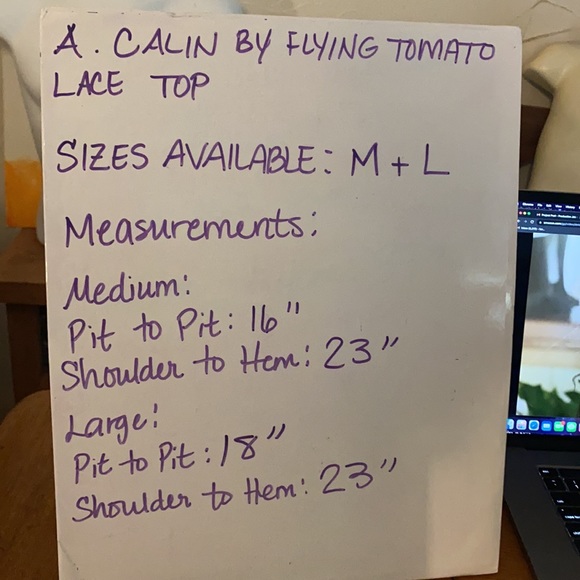 A. CALIN BY FLYING TOMATO
LACE TOP
SIZES AVAILABLE: M + L
Measurements:
Medium:
Pit to Pit: 16"
Shoulder to Hem: 23"
Large:
Pit to Pit: 18"
Shoulder to Hem: 23"